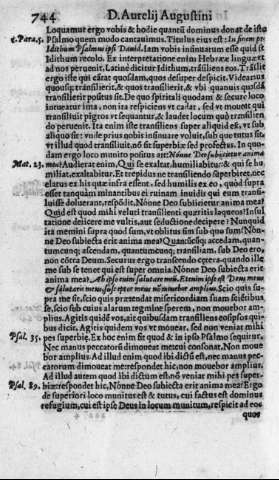 744 D. Aurelij Augustini
Loquamur ergo vobis & hodie quantũ dominus donat de isto
1. Para. 5. Psalmo quem modo cantauimus. Titulus eius est: In finem pro
Idithum Psalmus ipsi Dauid. Iam vobis insinuatum esse quid sit
Idithum recolo. Ex interpretatione enim Hebrææ linguæ vt
ad nos peruenit, Latinè dicitur Idithum, trãsiliens eos. Trãsilit
ergo iste qui cãtat quosdam, quos desuper despicit. Videamus
quousq; transilierit, & quos transilierit, & vbi quamuis quos-
transilierit positus sit. De quo spiritali quodam & securo loco
intueatur ima, non ita respiciens vt cadat, sed vt moueat qui
transiliuntur pigros vt sequantur, & laudet locum quò transilien-
do peruenit. Ita enim iste transiliens super aliquid est, vt sub
aliquo sit:
sed vt illud quod transiliuit, nõ sit superbiæ sed profectus. In quo-
dam ergo loco munito positus ait: Nónne Deo subijcietur anima
Mat. 23. mea? Audierat enim, Qui se exaltat, humiliabitur: & qui se hu-
miliat, exaltabitur. Et trepidus ne transiliendo superbiret, nec
elatus ex his quæ infra essent, sed humilis ex eo, quod supra
esset tanquam minantibus ei ruinam inuidis qui eum transi-
luisse doluerant, respõdit, Nónne Deo subijcietur anima mea?
Quid est quod mihi velut transilienti quæritis laqueos? Insul-
tatione deijcere me vultis, aut seductione decipere? Nunquid
ita memini supra quod sum, vt oblitus sim sub quo sum? Nón-
ne Deo subiecta erit anima mea? Quantũcũq; accedam, quan-
tumcunq; ascendam, quantumcunq; transiliam, sub Deo ero,
non cõtra Deum. Securus ergo transcendo cętera, quando ille
me sub se tenet qui est super omnia. Nónne Deo subiecta erit
anima mea? Ab ipso enim salutare meũ. Etenim ipse est Deus meus
& salutaris meus, susceptor meus nõ mouebor amplius. Scio quis su-
pra me sit, scio quis prætendat misericordiam suam scientibus
se, scio sub cuius alarum tegmine sperem, non mouebor am-
plius. Agitis quidẽ vos, ait quibusdam transiliens eosipsos qui-
bus dicit. Agitis quidem vos vt mouear, sed non veniat mihi
Psal. 35. pes superbiæ. Ex hoc enim fit quod & in ipso Psalmo sequitur,
Nec manus peccatorũ dimoueat me: cui consonat, Non moue-
bor amplius. Ad illud enim quod ibi dictũ est, nec manus pec-
catorum dimoueat me: respondet hic, non mouebor amplius.
Ad illud autem quod ibi dictum est, nõ veniat mihi pes super-
Psal. 89. biæ: respondet hic, Nónne Deo subiecta erit anima mea? Ergo
de superiori loco munitus est & tutus, cui factus est dominus
refugium, cui est ipse Deus in locum munitum, respicit ad eos
quos